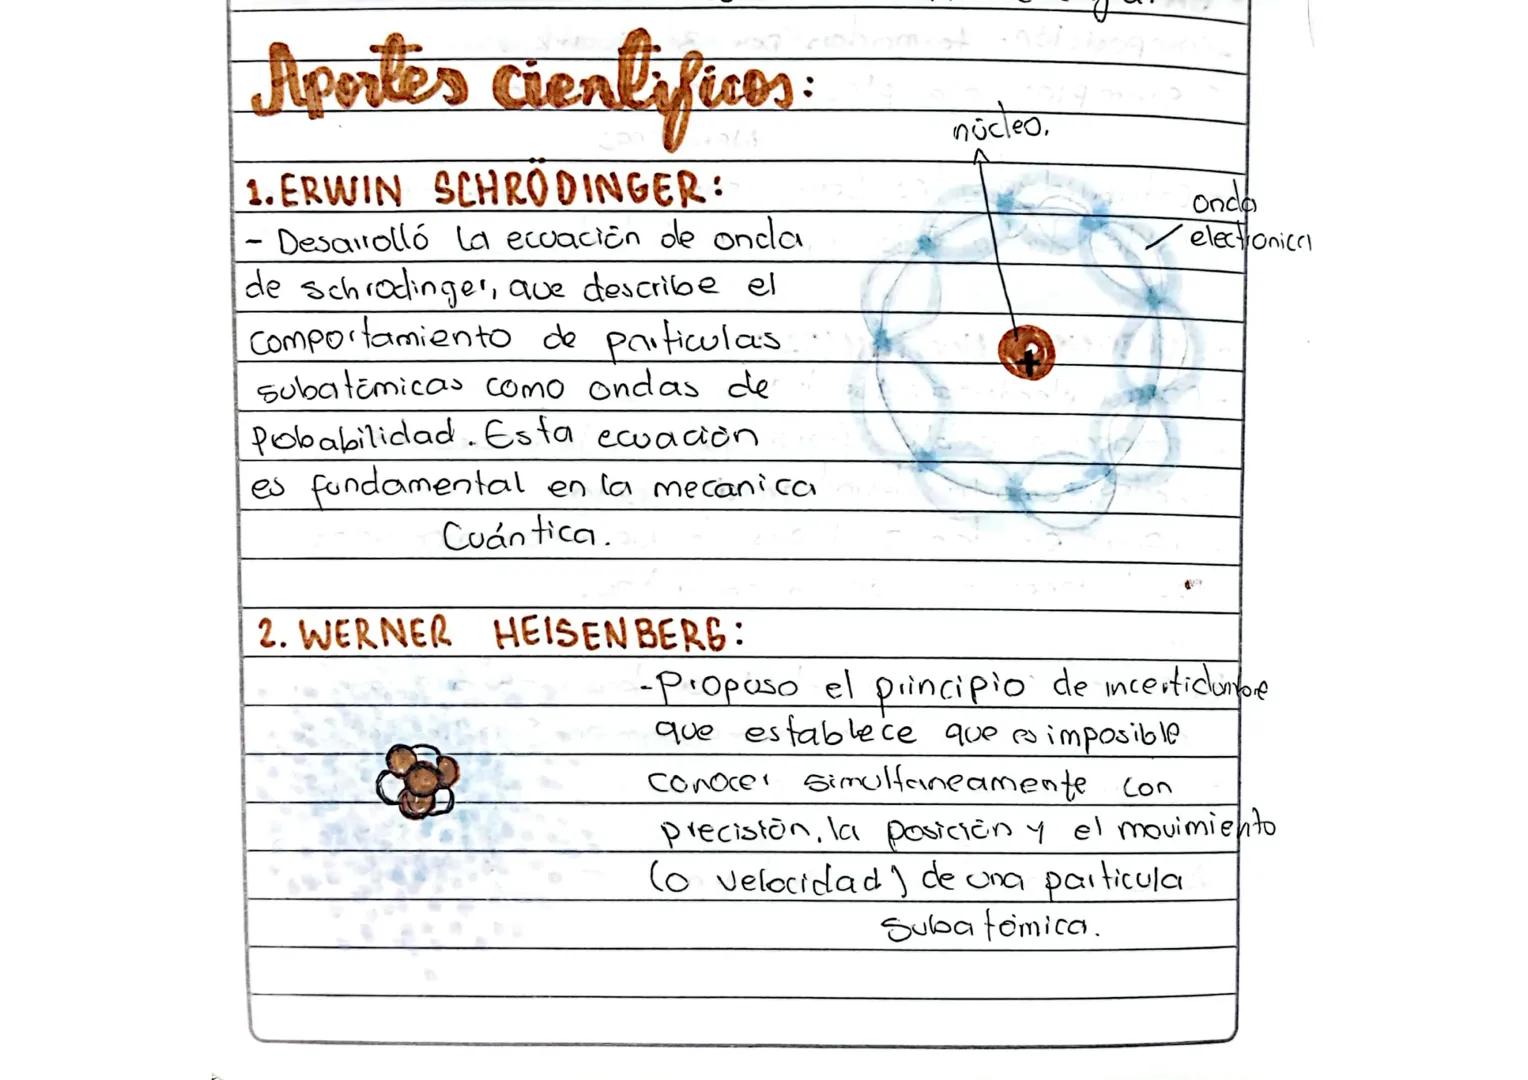 Aportes cientificos:
núcleo.
1. ERWIN SCHRÖDINGER:
onda
electronica
- Desarrolló la ecuación de onda
de schrodinger, que describe el
comportamiento de particulas
subatómicas como ondas de
Probabilidad. Esta ecuación
es fundamental en la mecanica
Cuántica.
2. WERNER HEISENBERG:
- Propuso el principio de incertidumbre
que establece que es imposible
conocer simultaneamente con
precisión, la posición y el movimiento
(o velocidad) de una particula
subatómica.